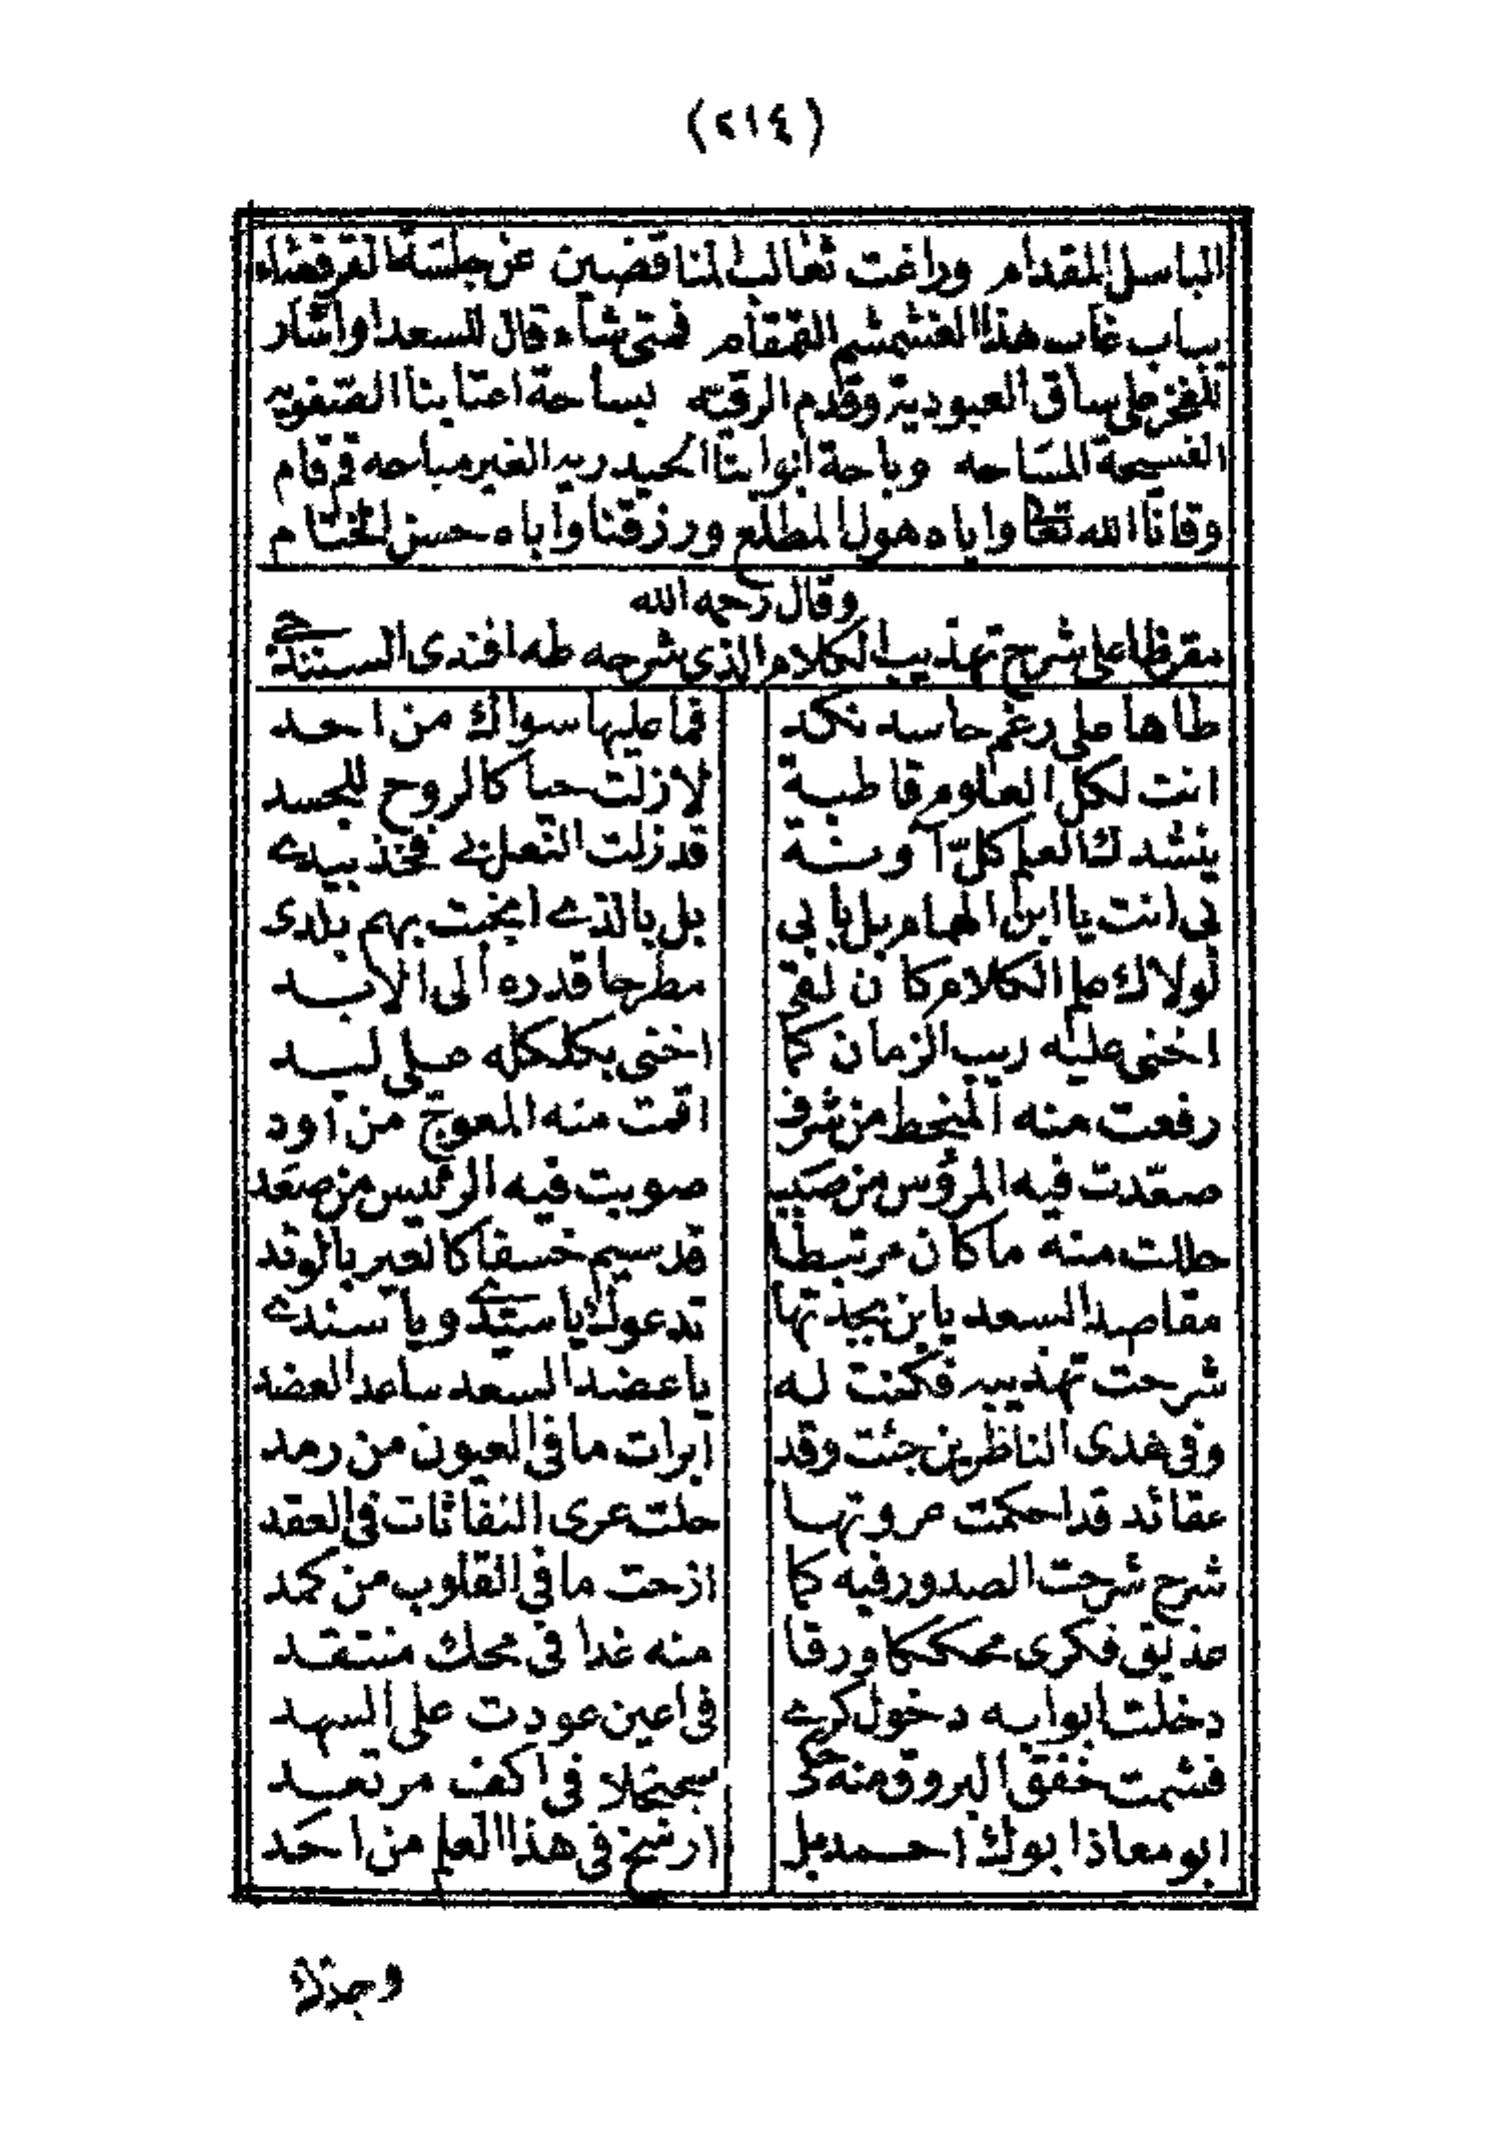 (٢١٤)
الباسل المقدام وراغت ثعالب المناقضين عن جلسة القرفصاء
بباب غاب هذا الغشمشم القمقام فمتى شاء قال للسعد اواشار
للفخر على ساق العبودية وقدم الرقيه بساحة اعتابنا الصفويه
الفسيحة المساحه وباحة ابوابنا الحيدريه الغير مباحه قم قام
وقانا الله تعالى واياه هول المطلع ورزقنا واياه حسن الختام
وقال رحمه الله
مقرظا على شرح تهذيب الكلام الذى شرحه طه افندى السنندجي
طاها على رغم حاسد نكد فما عليها سواك من احد
انت لكل العلوم قاطبة لازلت حيا كالروح للجسد
ينشدك العلم كلّ آونة قد زلت النعل بي فخذ بيدي
بى انت يا ابن الهمام بل بابى بل بالذي انجبت بهم بلدى
لولاك علم الكلام كان لقى مطرحا قدره الى الابد
اخنى عليه ريب الزمان كما اخنى بكلكله على لبد
رفعت منه المنحط من شرف اقمت منه المعوجّ من اود
صعّدت فيه المرؤس من صبب صوبت فيه الرئيس من صعد
حللت منه ماكان مرتبطا قد سيم خسفا كالعير بالوتد
مقاصد السعد يابن بجدتها تدعوك يا سيّدي ويا سندي
شرحت تهذيبه فكنت له يا عضد السعد ساعد العضد
وفى هدى الناظرين جئت وقد ابرات مافى العيون من رمد
عقائد قد احكمت عروتها حلت عرى النفاثات فى العقد
شرح شرحت الصدور فيه كما ازحت مافى القلوب من كمد
عذيق فكرى محككا ورقا منه غدا فى محك منتقد
دخلت ابوابه دخول كري فى اعين عودت على السهد
فشمت خفق البروق منه حكى سجنجلا فى اكف مرتعد
ابو معاذ ابوك احمد بل ارسخ فى هذا العلم من احد
وجدك